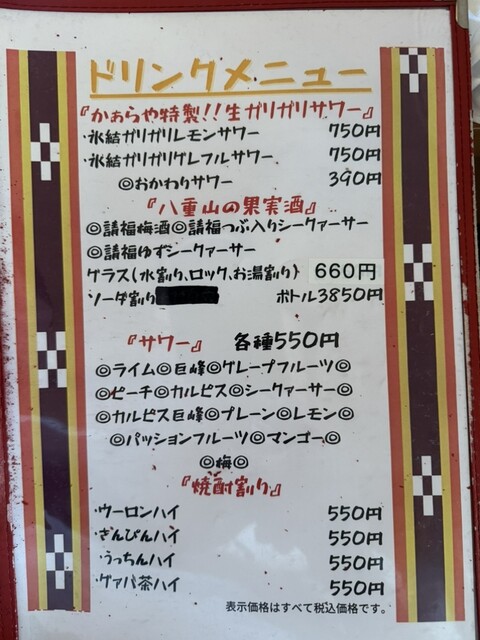 ドリンクメニュー
『かぁらや特製!!生ガリガリサワー』
・氷結ガリガリレモンサワー 750円
・氷結ガリガリグレフルサワー 750円
◎おかわりサワー 390円
『八重山の果実酒』
◎請福梅酒◎請福つぶ入りシークァーサー
◎請福ゆずシークァーサー
グラス(水割り、ロック、お湯割り) 660円
ソーダ割り ボトル3850円
『サワー』 各種550円
◎ライム◎巨峰◎グレープフルーツ◎
◎ピーチ◎カルピス◎シークァーサー◎
◎カルピス巨峰◎プレーン◎レモン◎
◎パッションフルーツ◎マンゴー◎
◎梅◎
『焼酎割り』
・ウーロンハイ 550円
・さんぴんハイ 550円
・うっちんハイ 550円
・グァバ茶ハイ 550円
表示価格はすべて税込価格です。